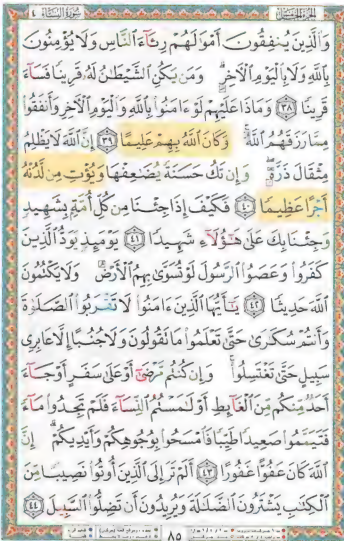 سُورَةُ النِّسَاءِ ٤
وَٱلَّذِينَ يُنفِقُونَ أَمْوَٰلَهُمْ رِئَآءَ ٱلنَّاسِ وَلَا يُؤْمِنُونَ
بِٱللَّهِ وَلَا بِٱلْيَوْمِ ٱلْءَاخِرِ ۗ وَمَن يَكُنِ ٱلشَّيْطَٰنُ لَهُۥ قَرِينًا فَسَآءَ
قَرِينًا ٣٨ وَمَاذَا عَلَيْهِمْ لَوْ ءَامَنُوا۟ بِٱللَّهِ وَٱلْيَوْمِ ٱلْءَاخِرِ وَأَنفَقُوا۟
مِمَّا رَزَقَهُمُ ٱللَّهُ ۚ وَكَانَ ٱللَّهُ بِهِمْ عَلِيمًا ٣٩ إِنَّ ٱللَّهَ لَا يَظْلِمُ
مِثْقَالَ ذَرَّةٍ ۖ وَإِن تَكُ حَسَنَةً يُضَٰعِفْهَا وَيُؤْتِ مِن لَّدُنْهُ
أَجْرًا عَظِيمًا ٤٠ فَكَيْفَ إِذَا جِئْنَا مِن كُلِّ أُمَّةٍۭ بِشَهِيدٍ
وَجِئْنَا بِكَ عَلَىٰ هَٰٓؤُلَآءِ شَهِيدًا ٤١ يَوْمَئِذٍ يَوَدُّ ٱلَّذِينَ
كَفَرُوا۟ وَعَصَوُا۟ ٱلرَّسُولَ لَوْ تُسَوَّىٰ بِهِمُ ٱلْأَرْضُ وَلَا يَكْتُمُونَ
ٱللَّهَ حَدِيثًا ٤٢ يَٰٓأَيُّهَا ٱلَّذِينَ ءَامَنُوا۟ لَا تَقْرَبُوا۟ ٱلصَّلَوٰةَ
وَأَنتُمْ سُكَٰرَىٰ حَتَّىٰ تَعْلَمُوا۟ مَا تَقُولُونَ وَلَا جُنُبًا إِلَّا عَابِرِى
سَبِيلٍ حَتَّىٰ تَغْتَسِلُوا۟ ۚ وَإِن كُنتُم مَّرْضَىٰٓ أَوْ عَلَىٰ سَفَرٍ أَوْ جَآءَ
أَحَدٌ مِّنكُم مِّنَ ٱلْغَآئِطِ أَوْ لَٰمَسْتُمُ ٱلنِّسَآءَ فَلَمْ تَجِدُوا۟ مَآءً
فَتَيَمَّمُوا۟ صَعِيدًا طَيِّبًا فَٱمْسَحُوا۟ بِوُجُوهِكُمْ وَأَيْدِيكُمْ ۗ إِنَّ
ٱللَّهَ كَانَ عَفُوًّا غَفُورًا ٤٣ أَلَمْ تَرَ إِلَى ٱلَّذِينَ أُوتُوا۟ نَصِيبًا مِّنَ
ٱلْكِتَٰبِ يَشْتَرُونَ ٱلضَّلَٰلَةَ وَيُرِيدُونَ أَن تَضِلُّوا۟ ٱلسَّبِيلَ ٤٤
٨٥